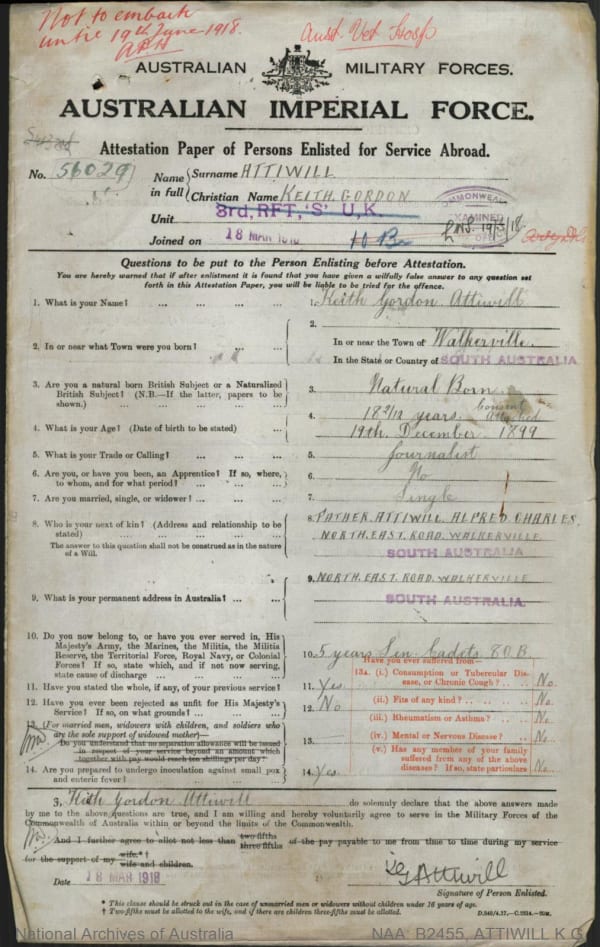 Not to embark
until 19th June 1918.
Aust Vet Hosp
AUSTRALIAN MILITARY FORCES.
AUSTRALIAN IMPERIAL FORCE.
Attestation Paper of Persons Enlisted for Service Abroad.
No. 56029
Name in full { Surname ATTIWILL
Christian Name KEITH GORDON
Unit 3rd, RFT, 'S' U.K.
Joined on 18 MAR 1918
COMMONWEALTH
EXAMINED
19/3/18
Questions to be put to the Person Enlisting before Attestation.
You are hereby warned that if after enlistment it is found that you have given a wilfully false answer to any question set
forth in this Attestation Paper, you will be liable to be tried for the offence.
1. What is your Name? ... ... ... ... 1. Keith Gordon Attiwill
2. In or near what Town were you born? ... ... 2.
In or near the Town of Walkerville.
In the State or Country of SOUTH AUSTRALIA
3. Are you a natural born British Subject or a Naturalized
British Subject? (N.B.—If the latter, papers to be
shown.) ... ... ... ... 3. Natural Born
4. What is your Age? (Date of birth to be stated) ... 4. 18 3/12 years. Consent attached
19th December 1899
5. What is your Trade or Calling? ... ... ... 5. Journalist
6. Are you, or have you been, an Apprentice? If so, where,
to whom, and for what period? ... ... ... 6. No
7. Are you married, single, or widower? ... ... ... 7. Single
8. Who is your next of kin? (Address and relationship to be
stated) ... ... ... ...
The answer to this question shall not be construed as in the nature
of a Will.
8. FATHER. ATTIWILL. ALFRED CHARLES.
NORTH. EAST. ROAD. WALKERVILLE
SOUTH AUSTRALIA
9. What is your permanent address in Australia? ... ...
9. NORTH. EAST. ROAD. WALKERVILLE
SOUTH AUSTRALIA.
10. Do you now belong to, or have you ever served in, His
Majesty's Army, the Marines, the Militia, the Militia
Reserve, the Territorial Force, Royal Navy, or Colonial
Forces? If so, state which, and if not now serving,
state cause of discharge ... ... ... 10. 5 years Sen. Cadets 80.B.
11. Have you stated the whole, if any, of your previous service? 11. Yes
12. Have you ever been rejected as unfit for His Majesty's
Service? If so, on what grounds? ... ... 12. No
13. (For married men, widowers with children, and soldiers who
are the sole support of widowed mother)—
Do you understand that no separation allowance will be issued
in respect of your service beyond an amount which
together with pay would reach ten shillings per day? 13.
14. Are you prepared to undergo inoculation against small pox
and enteric fever? ... ... ... 14. Yes
Have you ever suffered from—
13A. (i.) Consumption or Tubercular Disease, or Chronic Cough? .. .. No.
(ii.) Fits of any kind? .. .. No.
(iii.) Rheumatism or Asthma? .. No.
(iv.) Mental or Nervous Disease? .. No
(v.) Has any member of your family
suffered from any of the above
diseases? If so, state particulars No.
I, Keith Gordon Attiwill do solemnly declare that the above answers made
by me to the above questions are true, and I am willing and hereby voluntarily agree to serve in the Military Forces of the
Commonwealth of Australia within or beyond the limits of the Commonwealth.
And I further agree to allot not less than two-fifths
three fifths of the pay payable to me from time to time during my service
for the support of my wife.*†
wife and children.
Date 18 MAR 1918
KGAttiwill
Signature of Person Enlisted.
* This clause should be struck out in the case of unmarried men or widowers without children under 16 years of age.
† Two-fifths must be allotted to the wife, and if there are children three-fifths must be allotted.
National Archives of Australia
NAA: B2455, ATTIWILL K G